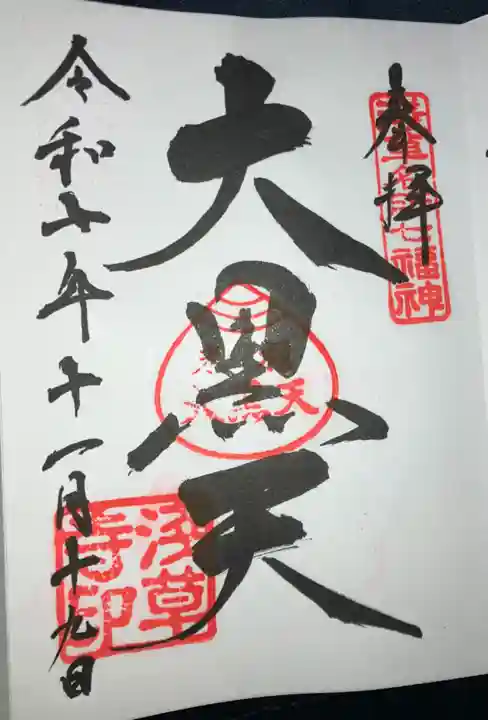 奉拝
浅草名所七福神
大黒天
令和六年十一月十九日
浅草
寺印